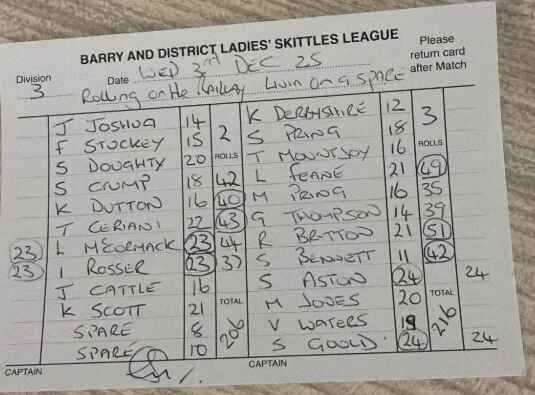 BARRY AND DISTRICT LADIES' SKITTLES LEAGUE
Please return card after Match
Division 3 Date WED 3rd DEC 25
Rolling on the Livin on a SPARE
J JOSHUA 14 2 K DERBYSHIRE 12 3
F STUCKEY 15 S PRING 18
S DOUGHTY 20 ROLLS T MOUNTJOY 16 ROLLS
S CRUMP 18 42 L FEANE 21 49
K DUTTON 16 40 M PRING 16 35
T CERIANI 22 43 G THOMPSON 14 39
23 L McCORMACK 23 44 R BRITTON 21 51
23 I ROSSER 23 37 S BENNETT 11 42
J CATTLE 16 S ASTON 24 24
K SCOTT 21 TOTAL M JONES 20 TOTAL
SPARE 8 206 V WATERS 19 216
SPARE 10 S GOULD 24 24
CAPTAIN CAPTAIN